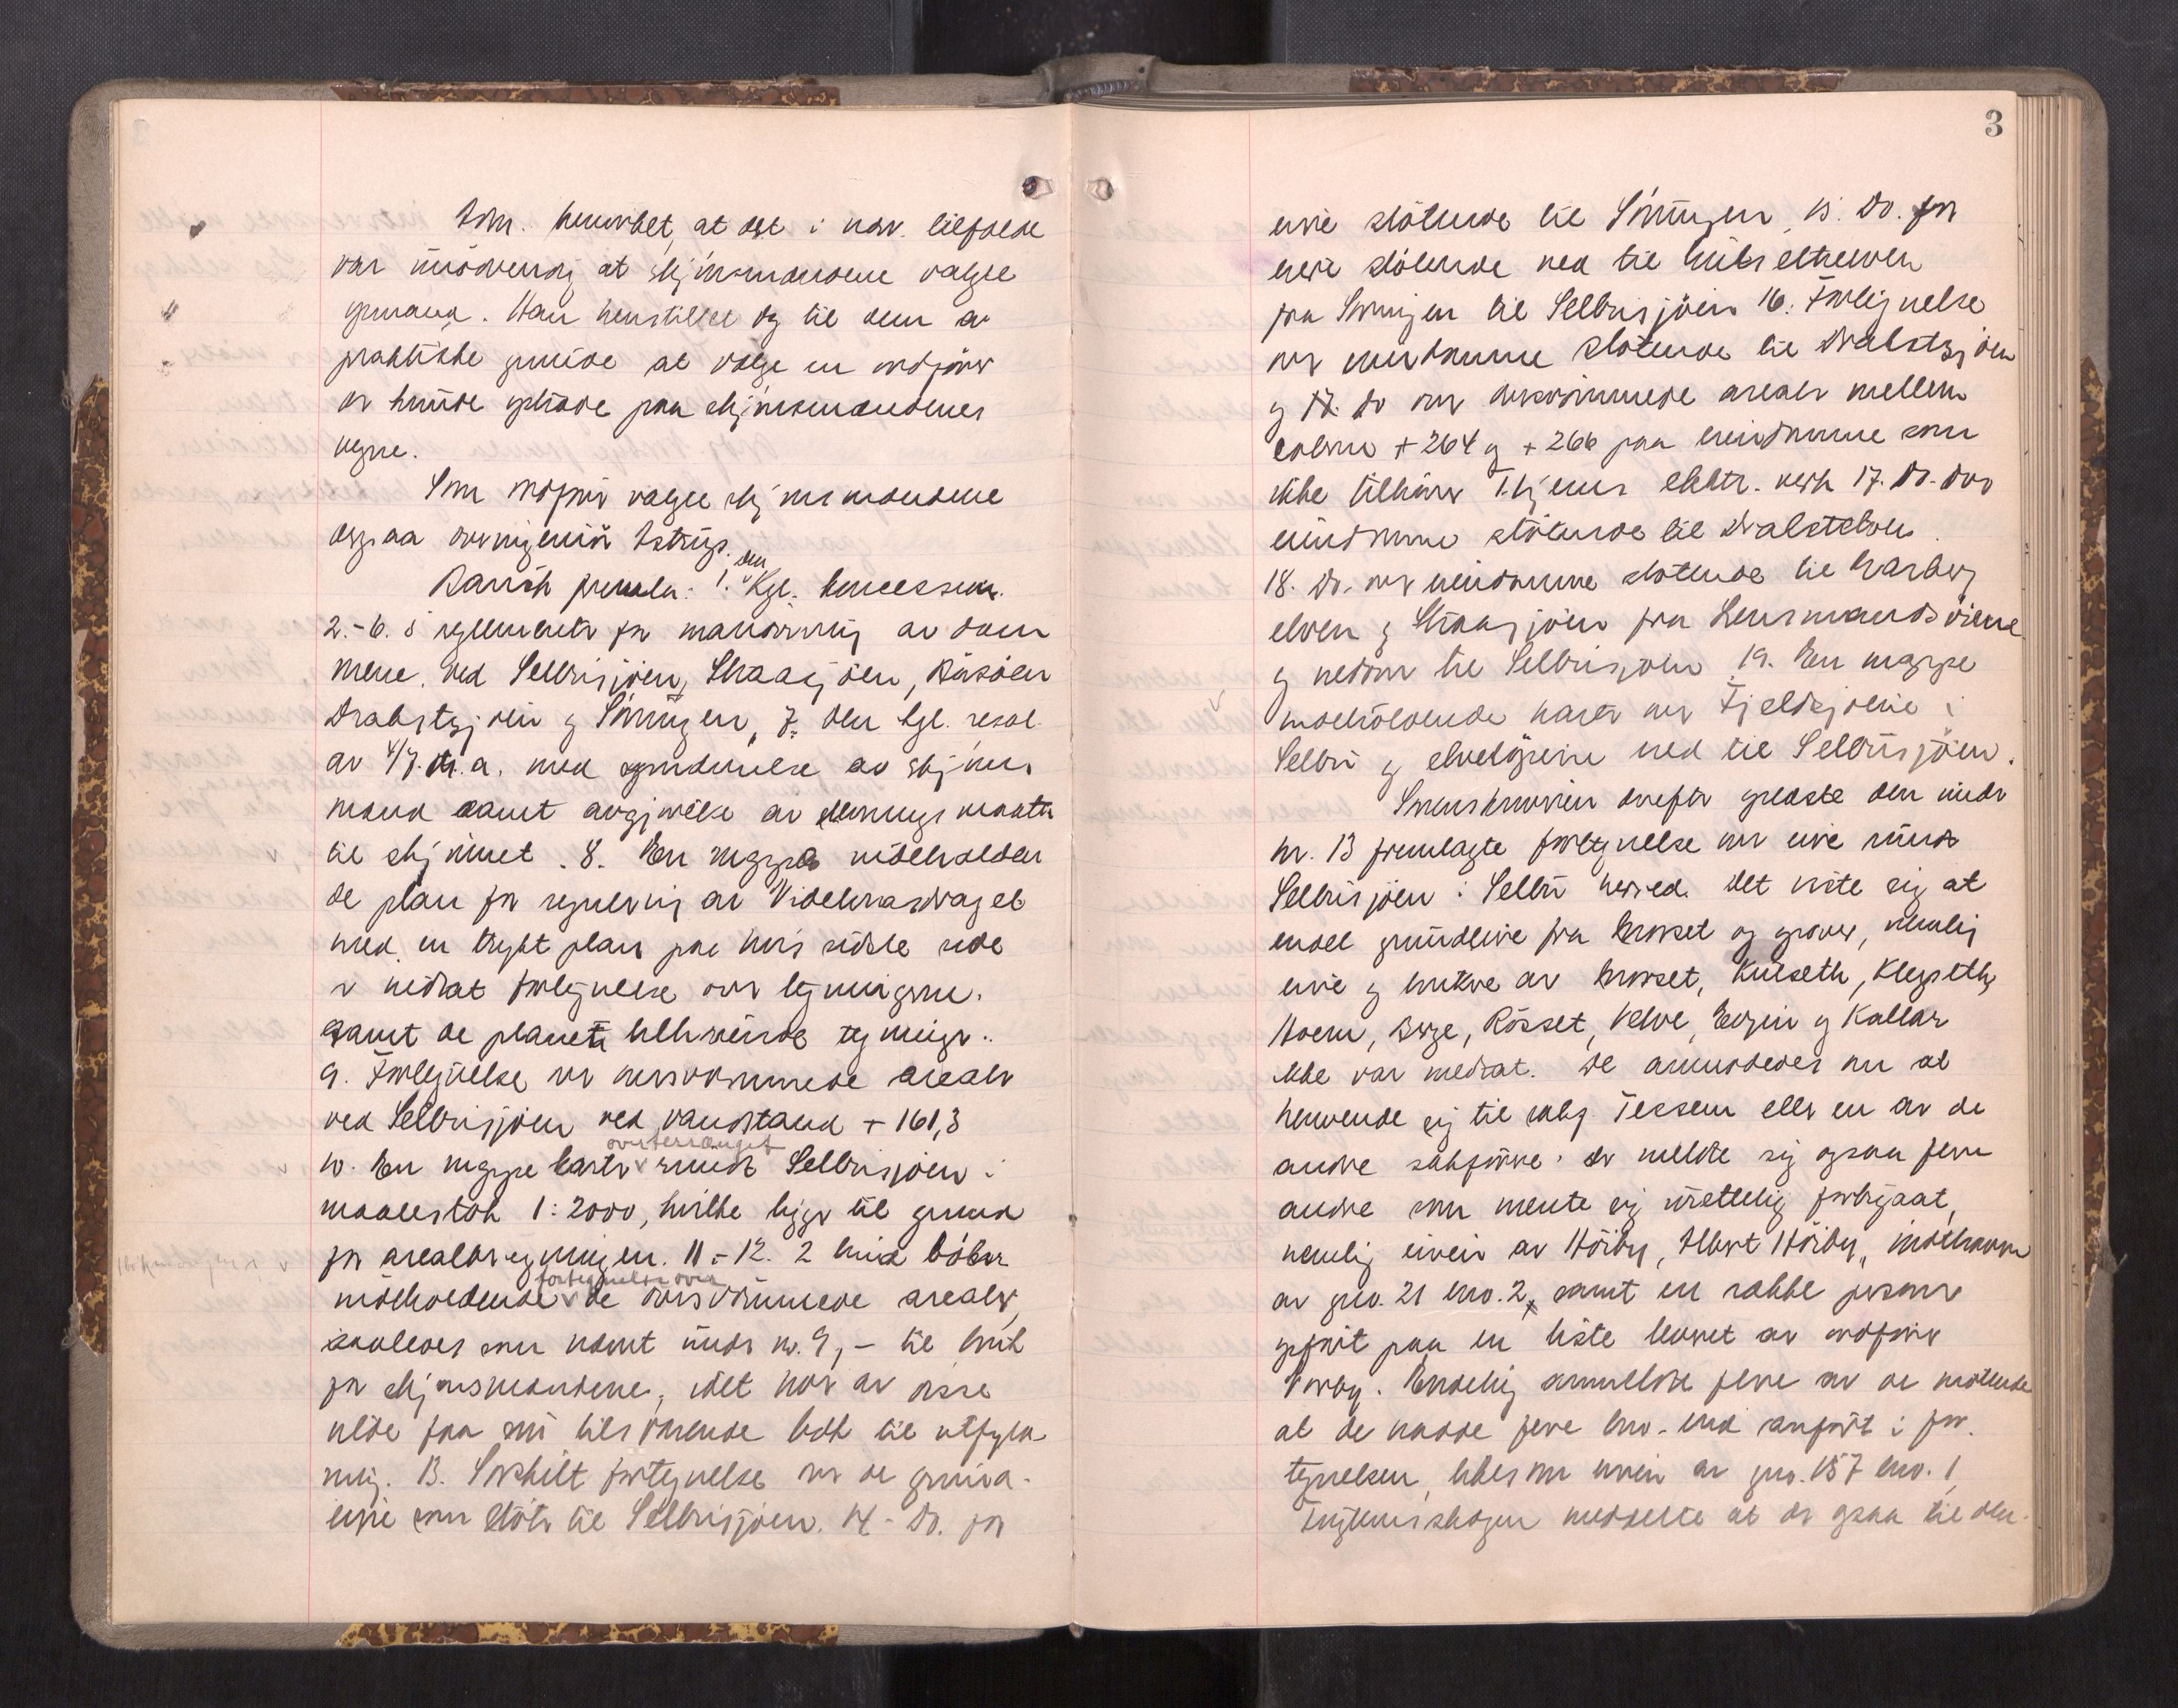 Dom. bemerket, at det i nærv. tilfælde
var unødvendig at skjønsmændene valgte
formand. Han henstillet dog til dem av
praktiske grunde at vælge en ordfører
der kunde optræde paa skjønsmændenes
vegne.
Som ordfører valgte skjønsmændene
derpaa overingeniør Astrup.
Barth fremla: 1. den Kgl. koncession.
2.-6. 5 reglementer for manøvrering av dam
mene ved Selbusjøen, Slaasjøen, Rusjøen
Drakstsjøen og Sørungen, 7. den kgl. resol.
av 4/7. d.a. med opnævnelse av skjøns
mænd samt avgivelse av stevnings maatte
til skjønnet. 8. En mappe indeholden
de plan for regulering av Nidelvasdraget
med en trykt plan paa hvis sidste side
er indtat fortegnelse over tegningerne.
samt de planen tilhørende tegninger.
9. Fortegnelse over oversvømmede arealer
ved Selbusjøen ved vandstand + 161,3
10. En mappe karter over terrænget rundt Selbusjøen i
maalestok 1:2000, hvilke ligger til grund
for arealberegningen. 11.-12. 2 bind bøker
indeholdende fortegnelse over de oversvømmede arealer,
saaledes som nævnt under nr. 9, - til bruk
for skjønsmændene, idet hver av disse
vilde faa sin tilsvarende bok til utfyld-
ning. 13. Særskilt fortegnelse over de grund-
eiere som støter til Selbusjøen. 14- Do. for
3
eiere støtende til Sørungen 15. Do. for
eiere støtende ned til
fra Sørungen til Selbusjøen 16. Fortegnelse
over eiendomme støtende til Drakstsjøen
og 17. do over oversvømmede arealer mellem
coterne + 264 og + 266 paa eiendomme som
ikke tilhører T.hjems elektr. verk 17. Do. over
eiendomme støtende til Drakstelven.
18. Do. over eiendomme støtende til Garberg
elven og Slaasjøen fra Lensmandsøiene
og nedover til Selbusjøen 19. En mappe
indeholdende karter over Fjeldsjøene i
Selbu og elveløpene ned til Selbusjøen.
Sorenskriveren derefter oplæste den under
nr. 13 fremlagte fortegnelse over eiere rundt
Selbusjøen i Selbu herred. Det viste sig at
endel grundeiere fra Morset og graver, nemlig
eiere og brukere av Morset, Kulseth, Klegseth,
Hoem, Berge, Rosset, Velve, Evjen og Kallar
ikke var medtat. De anmodedes om at
henvende sig til sakf. Tessem eller en av de
andre sakførere. Der meldte sig ogsaa flere
andre som mente sig urettelig forbigaat,
nemlig eieren av Høiby, Albert Høiby, indehaver
av gno. 21 bno. 2, samt en række personer
opført paa en liste leveret av ordfører
Norby. Endelig anmeldte flere av de møtende
at de hadde flere bno. end anført i for-
tegnelsen, likesom eieren av gno. 157 bno. 1,
meddelte at der ogsaa til den-